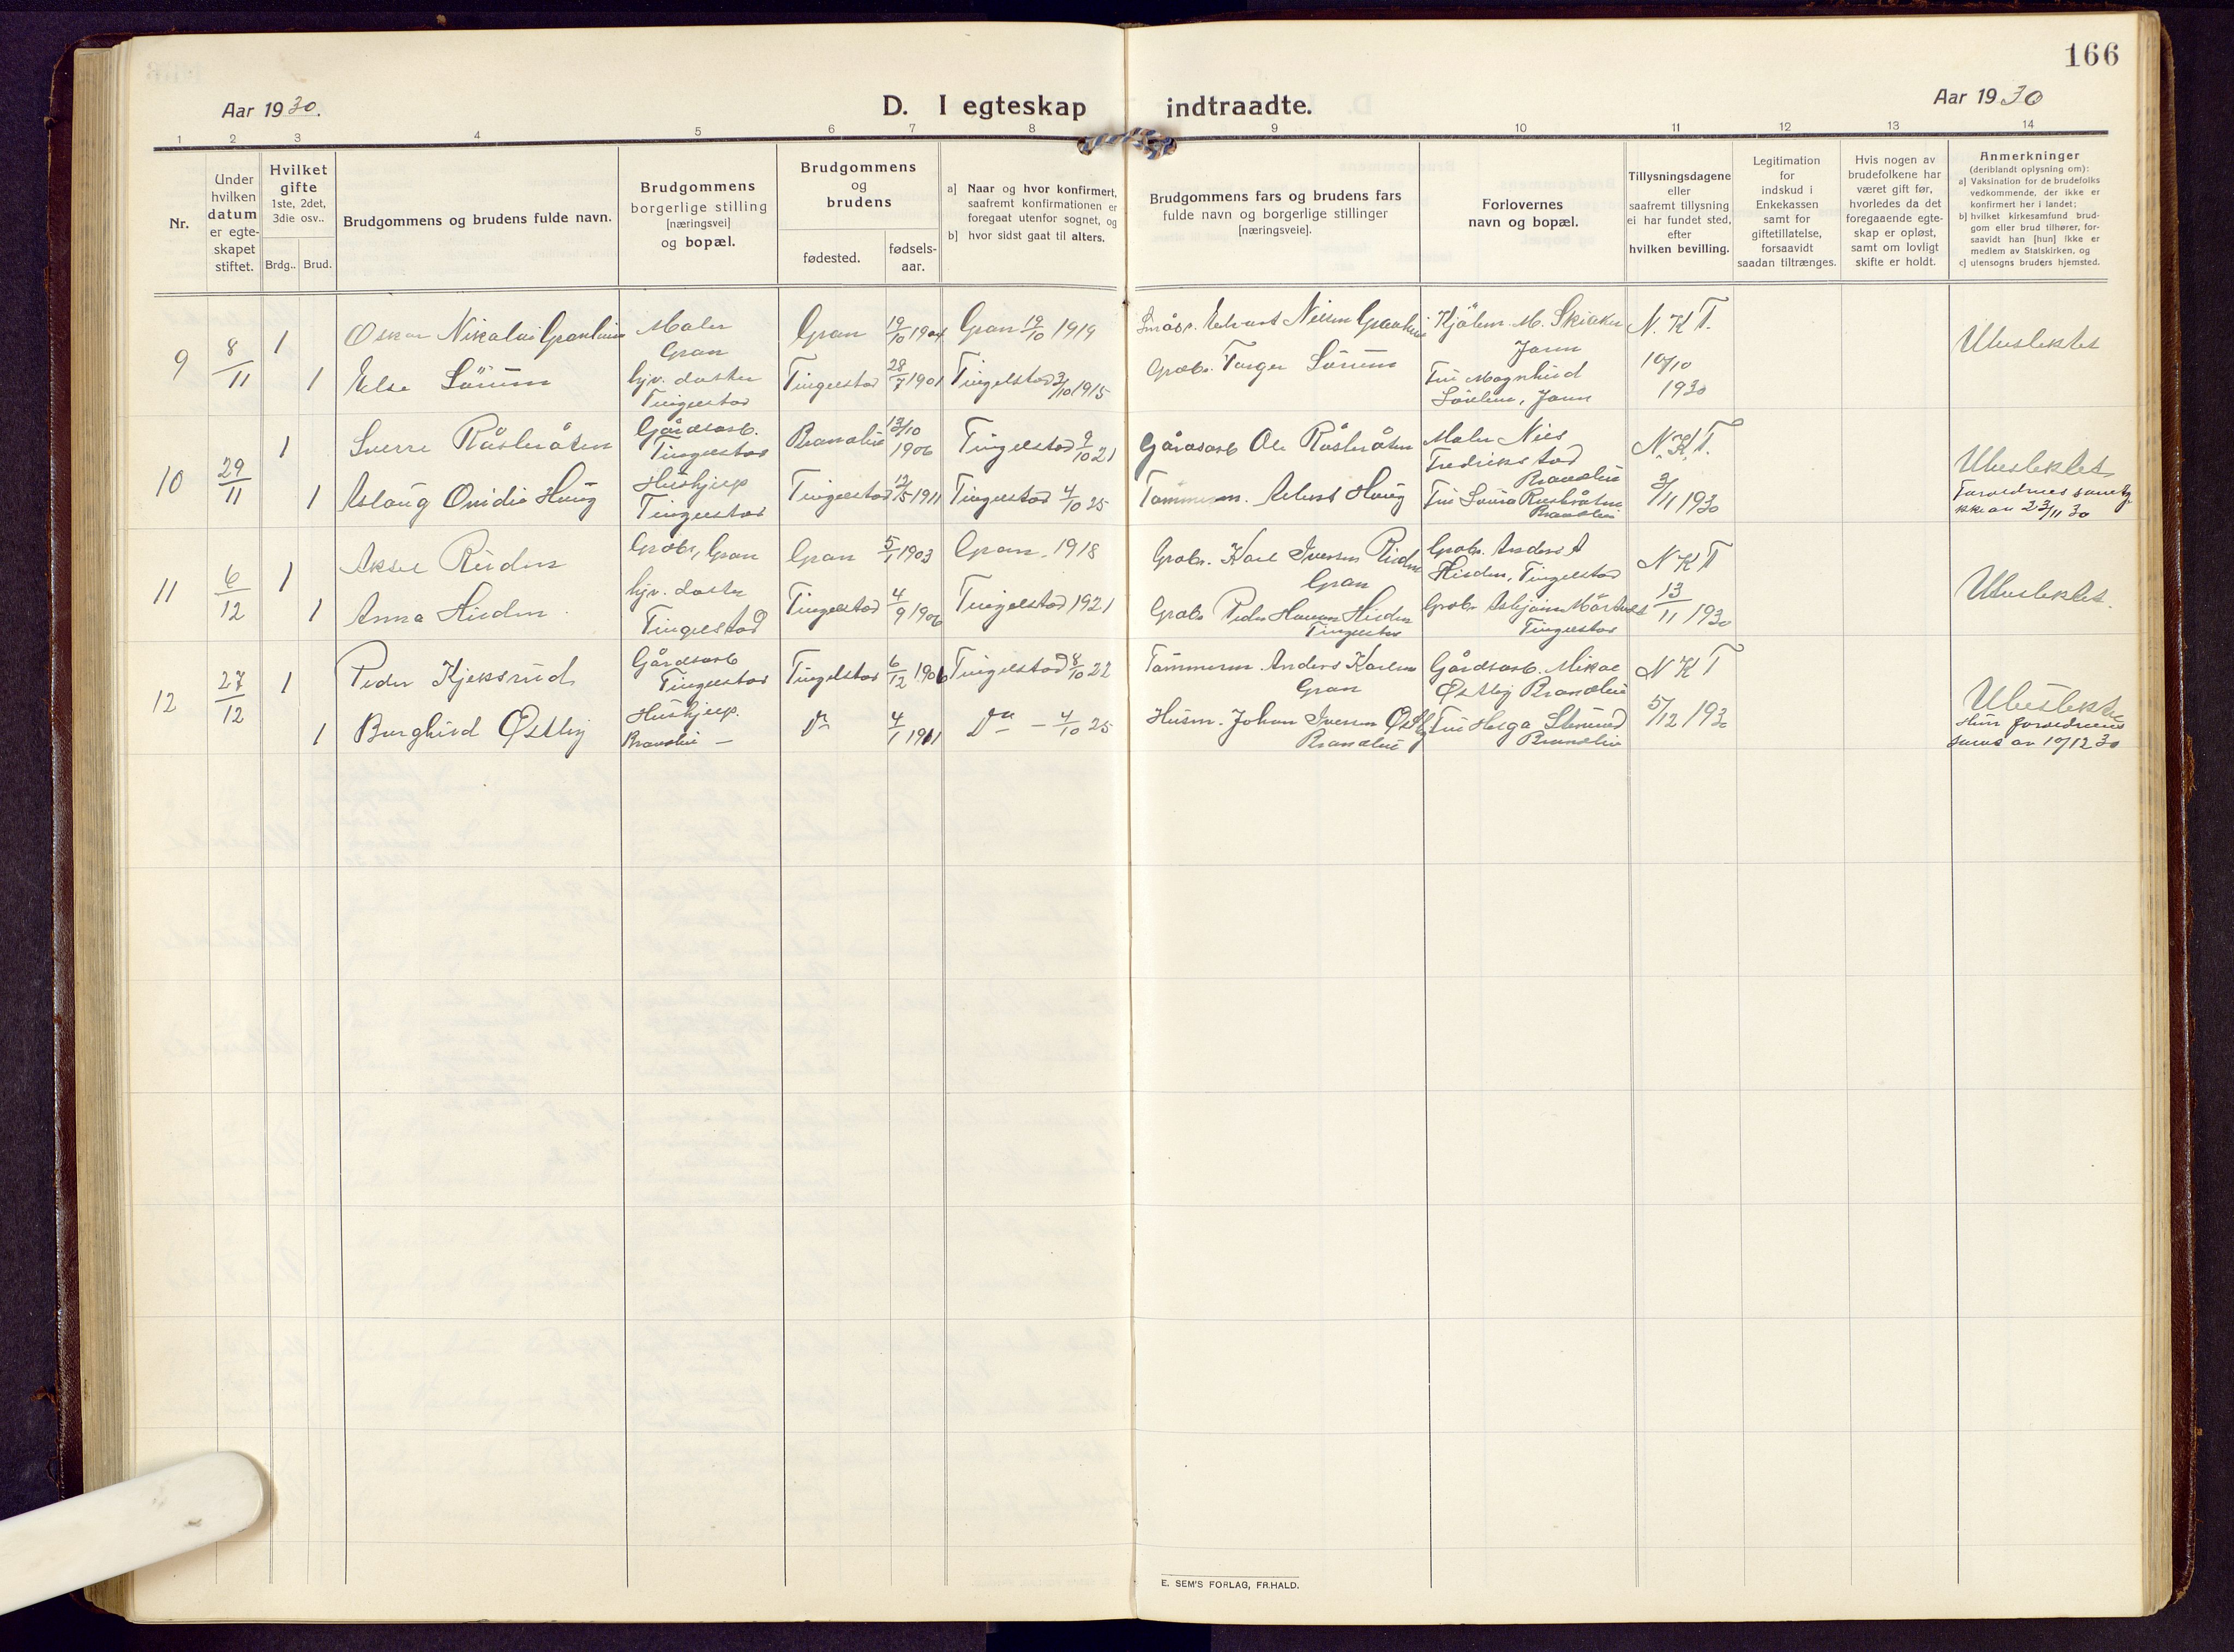 166
Aar 1930.
D. I egteskap indtraadte.
Aar 1930
1 2 3 4 5 6 7 8 9 10 11 12 13 14
Nr.
Under
hvilken
datum
er egte-
skapet
stiftet.
Hvilket
gifte
1ste, 2det,
3die osv..
Brdg.. Brud.
Brudgommens og brudens fulde navn.
Brudgommens
borgerlige stilling
[næringsvei]
og bopæl.
Brudgommens
og
brudens
fødested.
fødsels-
aar.
a] Naar og hvor konfirmert,
saafremt konfirmationen er
foregaat utenfor sognet, og
b] hvor sidst gaat til alters.
Brudgommens fars og brudens fars
fulde navn og borgerlige stillinger
[næringsveie].
Forlovernes
navn og bopæl.
Tillysningsdagene
eller
saafremt tillysning
ei har fundet sted,
efter
hvilken bevilling.
Legitimation
for
indskud i
Enkekassen
samt for
giftetillatelse,
forsaavidt
saadan tiltrænges.
Hvis nogen av
brudefolkene har
været gift før,
hvorledes da det
foregaaende egte-
skap er opløst,
samt om lovligt
skifte er holdt.
Anmerkninger
(deriblandt oplysning om):
a] Vaksination for de brudefolks
vedkommende, der ikke er
konfirmert her i landet;
b] hvilket kirkesamfund brud-
gom eller brud tilhører, for-
saavidt han [hun] ikke er
medlem av Statskirken, og
c] utensogns bruders hjemsted.
9 8/11 1
Oskar Nikolai Granlund
Maler
Gran
Gran 19/10 1904
Gran 19/10 1919
N. K T.
10/10
1930
Ubeslektet
1 Else Sörum
hjv. datter
Tingelstad
Tingelstad 28/7 1901
Tingelstad 3/10 1915
Gårdbr. Torger Sörum
10 29/11 1
Sverre Råsbråten
Gårdsarb.
Tingelstad
Brandbu 13/10
1906
Tingelstad 9/10 21
Gårdsarb Ole Råsbråten
Maler Nils
Fredrikstad
Brandbu
N. K. T.
3/11 1930
Ubeslektet
1 Aslaug Ovidia Haug
Hushjelp
Tingelstad
Tingelstad 12/5 1911
Tingelstad 4/10 25
Tømmerm. Albert Haug
11 6/12 1
Aksel Ruden
Gårdbr, Gran
Gran 5/1 1903
Gran 1918
Grobr. Karl Iversen Ruden
Gran
Grobr. Anders A
Hilden, Tingelstad
N K T
13/11 1930
Ubeslektet.
1 Anna Hilden
hjv. datter
Tingelstad
Tingelstad 4/9 1906
Tingelstad 1921
Grobr Peder Hansen Hilden
Tingelstad
Tingelstad
12 27/12 1
Peder Kjeksrud
Gårdsarb
Tingelstad
Tingelstad 6/12 1906
Tingelstad 8/10 22
Tømmerm. Anders Karlsen
Gran
Gårdsarb. Mikal
Østby Brandbu
N K T
5/12 1930
Ubeslektet
1 Borghild Østby
Hushjelp.
Brandbu —
Do 4/1 1911
Do — 4/10 25
Husm. Johan Iversen Østby
Brandbu
Brandbu
E. SEM'S FORLAG, FR.HALD.